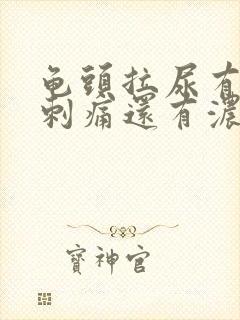 龟頭拉尿有
刺痛還有濃
寶神官